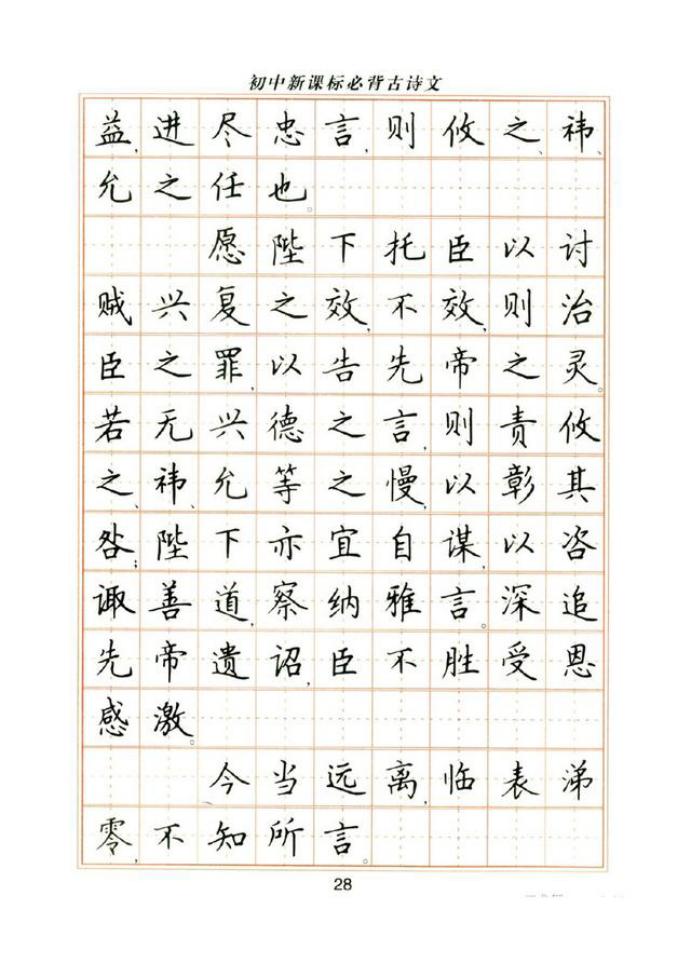 初中新课标必背古诗文
益,进尽忠言,则攸之、祎、
允之任也。
愿陛下托臣以讨
贼兴复之效,不效,则治
臣之罪,以告先帝之灵。
若无兴德之言,则责攸
之、祎、允等之慢,以彰其
咎;陛下亦宜自谋,以咨
诹善道,察纳雅言。深追
先帝遗诏,臣不胜受恩
感激。
今当远离,临表涕
零,不知所言。
28